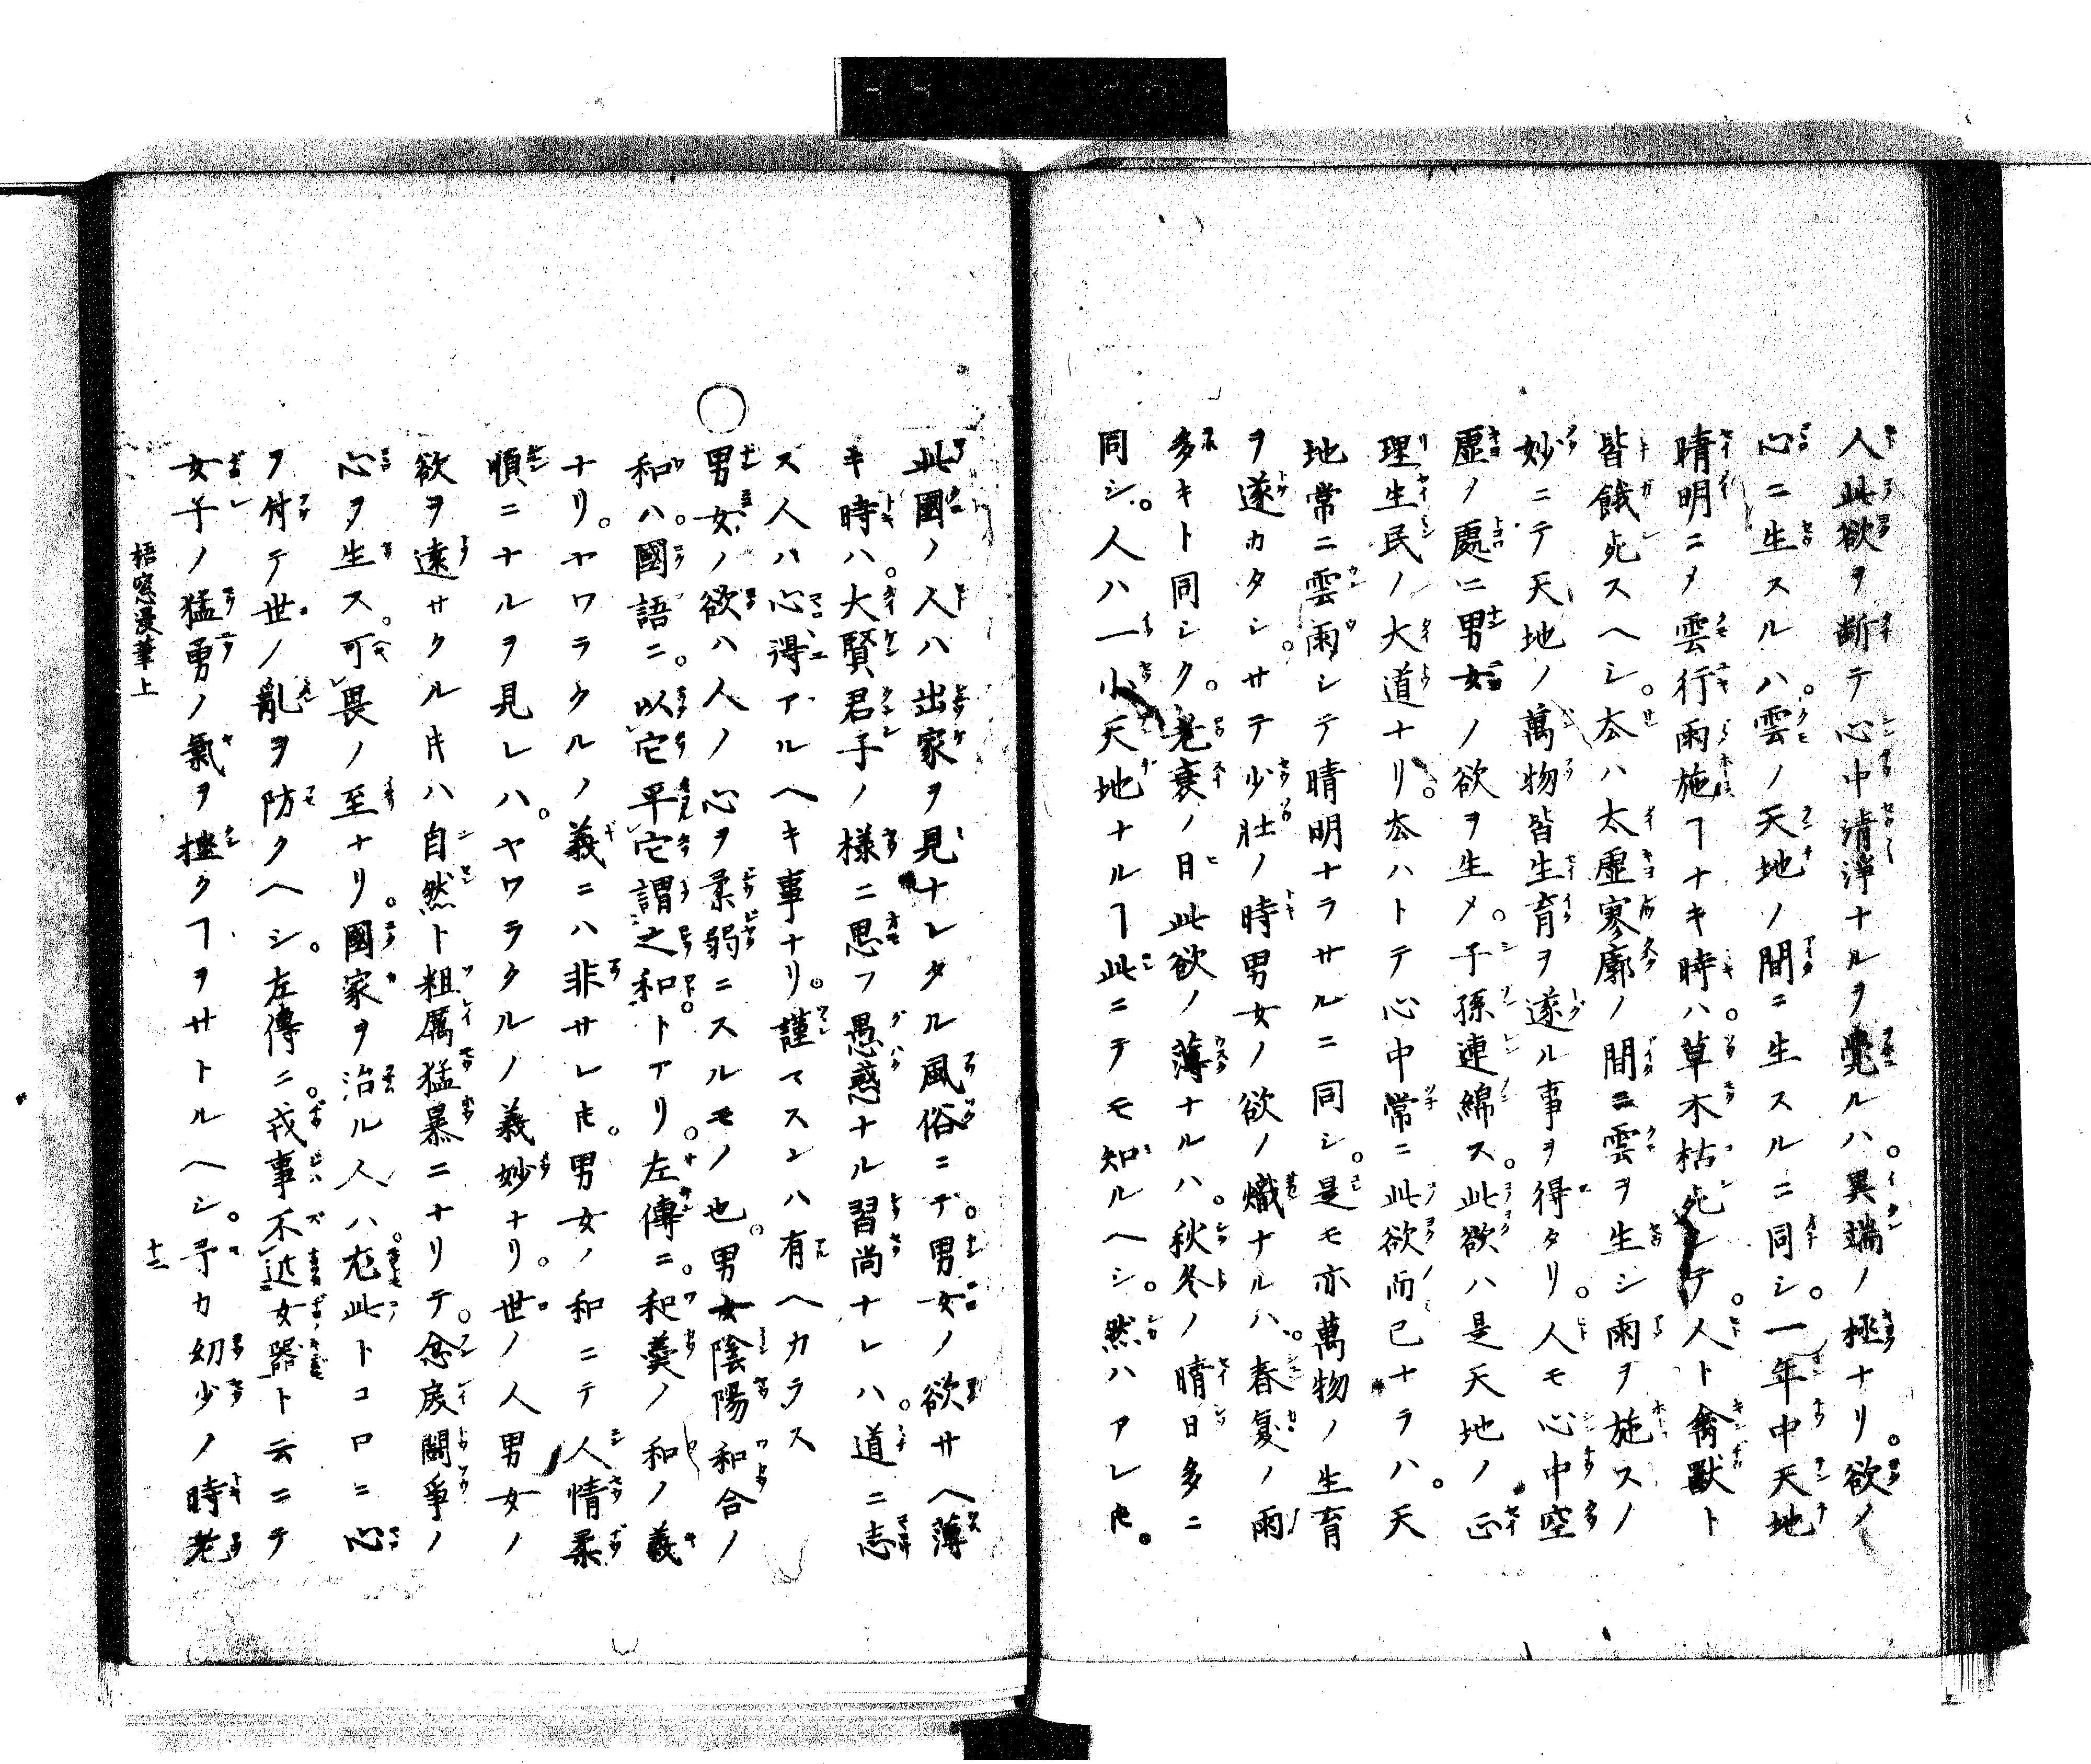 人此欲ヲ断テ心中清淨ナルヲ覺ルハ。異端ノ極ナリ。欲ノ
心ニ生スルハ。雲ノ天地ノ間ニ生スルニ同シ。一年中天地
晴明ニメ雲行雨施ヿナキ時ハ。草木枯死シテ。人ト禽獸ト
皆餓死スヘシ。夲ハ太虚寥廓ノ間ニ雲ヲ生シ雨ヲ施スノ
妙ニテ天地ノ萬物皆生育ヲ遂ル事ヲ得タリ。人モ心中空
虚ノ處ニ男女ノ欲ヲ生メ。子孫連綿ス。此欲ハ是天地ノ正
理生民ノ大道ナリ。夲ハトテ心中常ニ此欲而已ナラハ。天
地常ニ雲雨シテ晴明ナラサルニ同シ。是モ亦萬物ノ生育
ヲ遂カタシ。サテ少壮ノ時男女ノ欲ノ熾ナルハ。春夏ノ雨
多キト同シク。老衰ノ日此欲ノ薄ナルハ。秋冬ノ晴日多ニ
同シ。人ハ一小天地ナルヿ此ニテモ知ルヘシ。然ハアレ𪜈。
此國ノ人ハ出家ヲ見ナレタル風俗ニテ。男女ノ欲サヘ薄
キ時ハ。大賢君子ノ様ニ思フ愚惑ナル習尚ナレハ。道ニ志
ス人ハ心得アルヘキ事ナリ。謹マスンハ有ヘカラス
○男女ノ欲ハ人ノ心ヲ柔弱ニスルモノ也。男女陰陽和合ノ
和ハ。國語ニ。以它平它謂之和。トアリ。左傳ニ。和羹ノ和ノ義
ナリ。ヤワラクルノ義ニハ非サレ𪜈。男女ノ和ニテ人情柔
順ニナルヲ見レハ。ヤワラクルノ義妙ナリ。世ノ人男女ノ
欲ヲ遠サクル片ハ自然ト粗厲猛暴ニナリテ。忿戻鬪爭ノ
心ヲ生ス。可畏ノ至ナリ。國家ヲ治ル人ハ。尤此トコロニ心
ヲ付テ世ノ亂ヲ防クヘシ。左傳ニ。戎事不近女器ト云ニテ
女子ノ猛勇ノ氣ヲ挫クヿヲサトルヘシ。予カ幼少ノ時老
梧窓漫筆上
十二